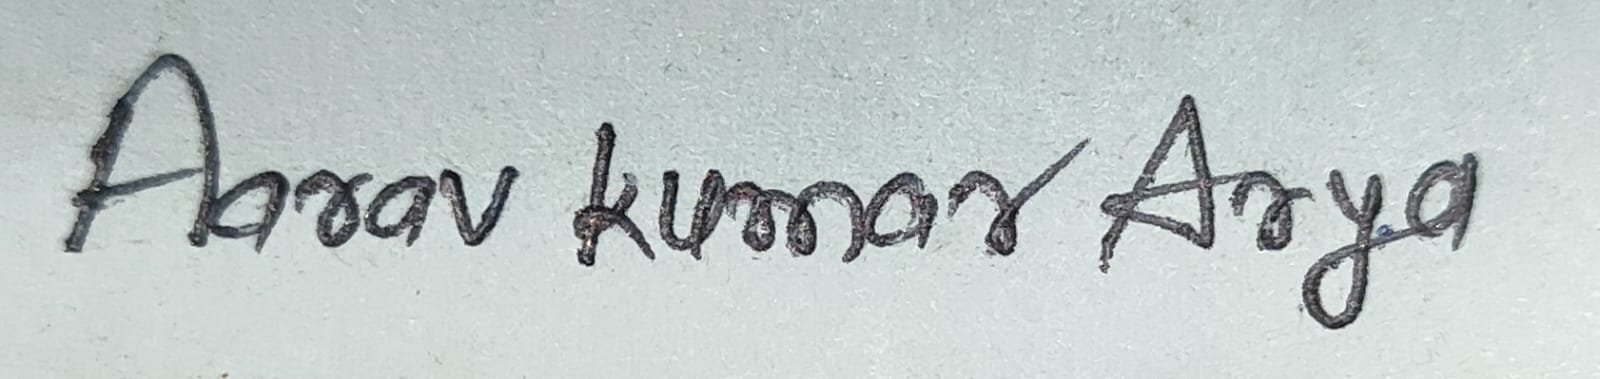 Aarav kumar Arya